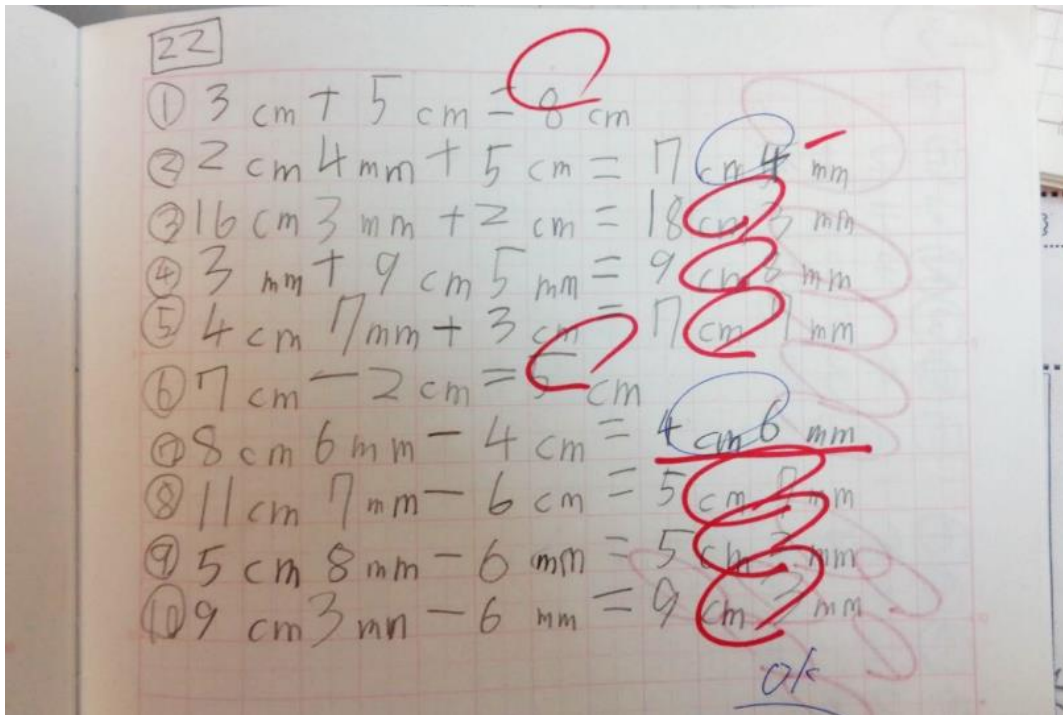 22
① 3 cm + 5 cm = 8 cm
② 2 cm 4 mm + 5 cm = 7 cm 4 mm
③ 16 cm 3 mm + 2 cm = 18 cm 3 mm
④ 3 mm + 9 cm 5 mm = 9 cm 8 mm
⑤ 4 cm 7 mm + 3 cm = 7 cm 7 mm
⑥ 7 cm - 2 cm = 5 cm
⑦ 8 cm 6 mm - 4 cm = 4 cm 6 mm
⑧ 11 cm 7 mm - 6 cm = 5 cm 7 mm
⑨ 5 cm 8 mm - 6 mm = 5 cm mm
⑩ 9 cm 3 mm - 6 mm = 9 cm 3 mm
ok